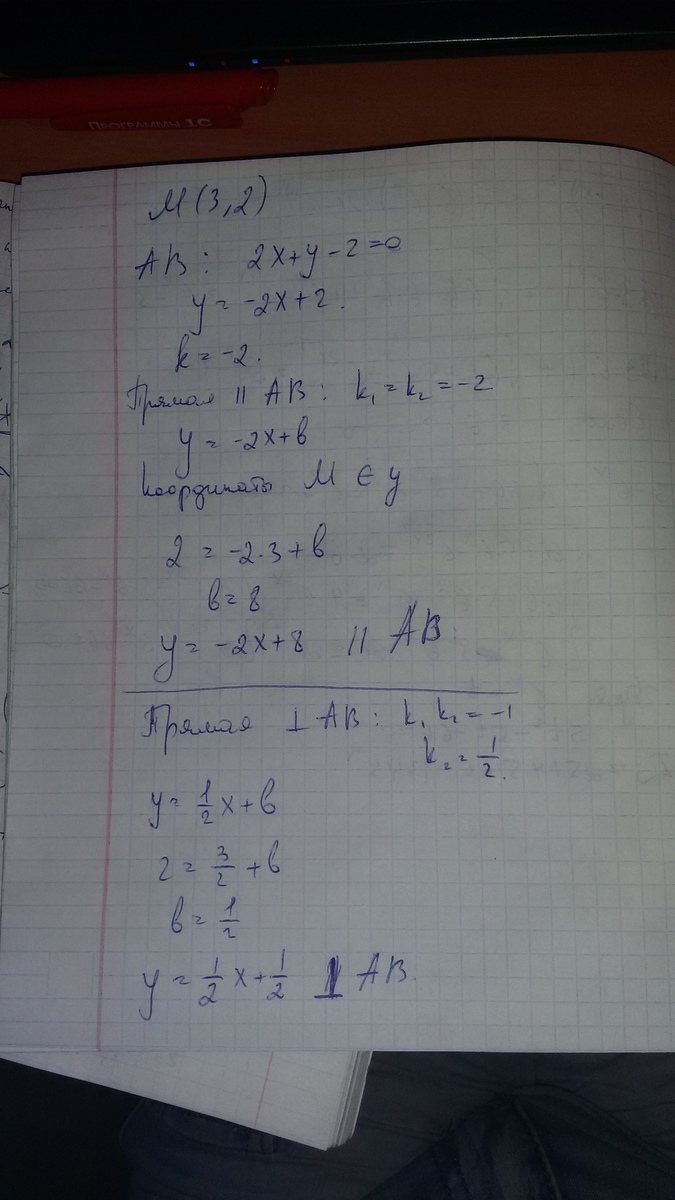 Программы 1С
M (3,2)
AB: 2x+y-2=0
y = -2x+2.
k = -2.
Прямая || AB: k₁ = k₂ = -2
y = -2x+b
Координаты M ∈ y
2 = -2·3+b
b = 8
y = -2x+8 || AB
Прямая ⊥ AB: k₁ k₂ = -1
k₂ = 1/2.
y = 1/2 x + b
2 = 3/2 + b
b = 1/2
y = 1/2 x + 1/2 ⊥ AB.